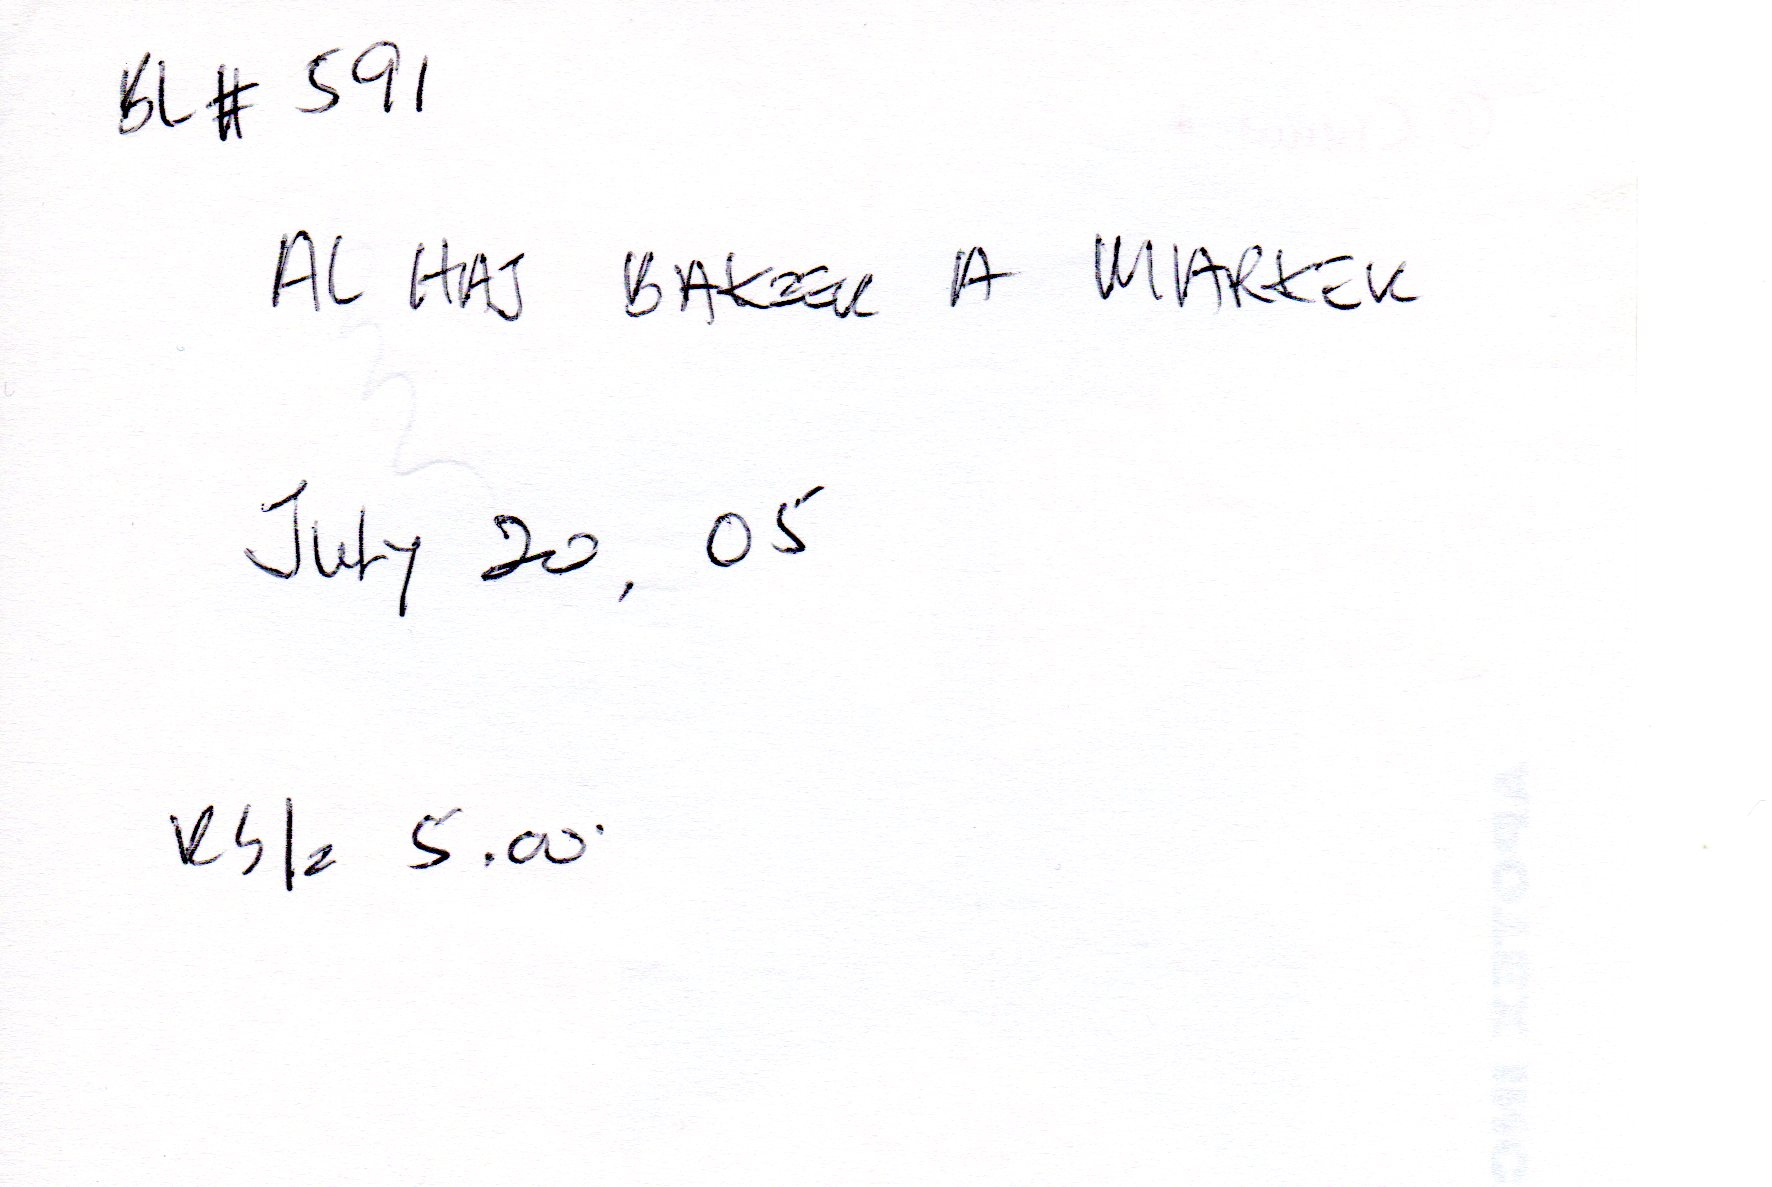 BL# 591
AL HAJ BAKEER A MARKER
July 20, 05
RS/= 5.00